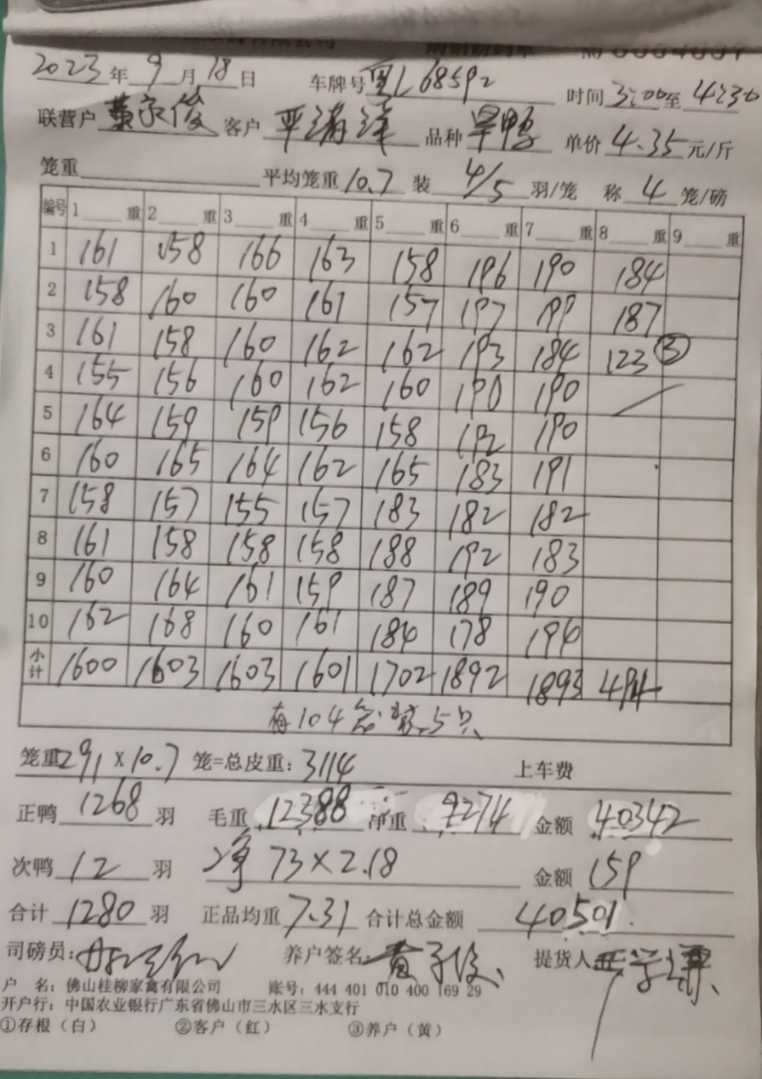 2023年9月18日 车牌号 粤L68592 时间3:00至4:30
联营户 黄家俊 客户 品种 旱鸭 单价4.35元/斤
笼重 平均笼重10.7 装4/5羽/笼 称4笼/磅
编号 1 重 2 重 3 重 4 重 5 重 6 重 7 重 8 重 9 重
1 161 158 166 163 158 196 190 184
2 158 160 160 161 157 197 199 187
3 161 158 160 162 162 193 184 123 ③
4 155 156 160 162 160 190 190
5 164 159 159 156 158 192 190
6 160 165 164 162 165 183 191
7 158 157 155 157 183 182 182
8 161 158 158 158 188 192 183
9 160 164 161 159 187 189 190
10 162 168 160 161 184 178 194
小计 1600 1603 1603 1601 1702 1892 1893 494
有104笼装5只
笼重291×10.7 笼=总皮重:3114 上车费
正鸭1268羽 毛重12388 净重9274 金额40342
次鸭12羽 净73×2.18 金额159
合计1280羽 正品均重7.31 合计总金额40501.
司磅员: 养户签名 黄家俊 提货人
户 名:佛山桂柳家禽有限公司 账号:444 401 010 400 169 29
开户行:中国农业银行广东省佛山市三水区三水支行
①存根(白) ②客户(红) ③养户(黄)